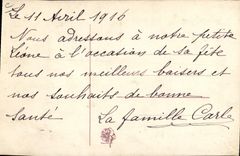 Le 11 Avril 1916
Nous adressons à notre petite
Liône à l'occasion de sa fête
tous nos meilleurs baisers et
nos souhaits de bonne
santé La famille Carle